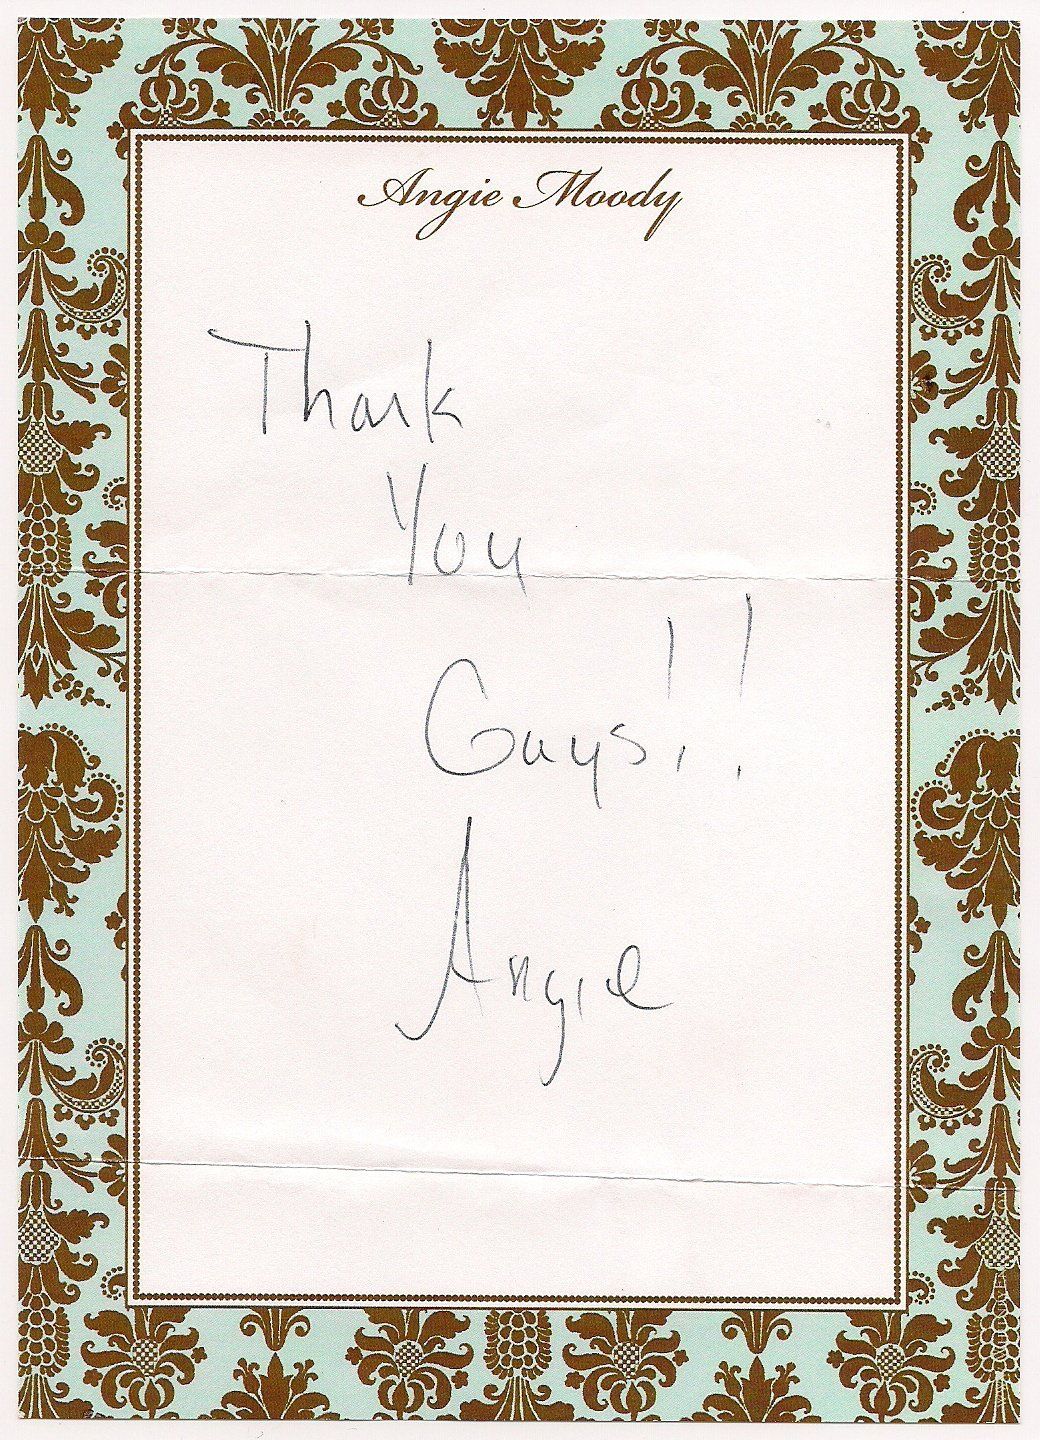 Angie Moody
Thank
You
Guys!!
Angie